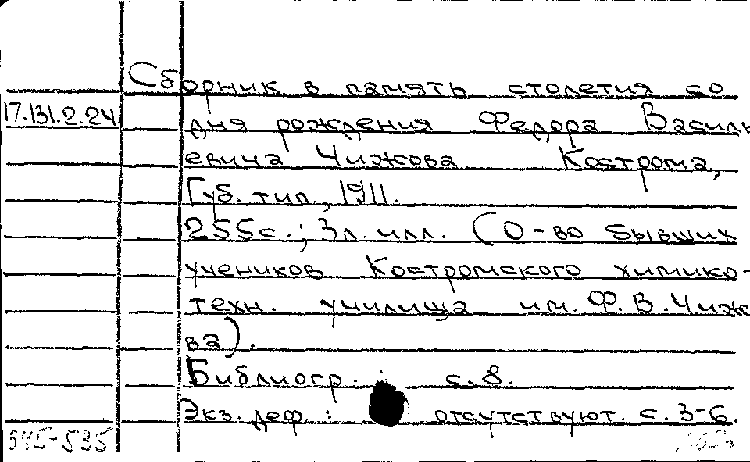 Сборник в память столетия со
17.131.2.24
дня рождения Федора Василь
евича Чижова Кострома,
Губ. тип, 1911.
255с.; 3л. илл. (О-во бывших
учеников Костромского химико-
техн. училища им. Ф.В. Чижо
ва).
Библиогр. : с.8.
Экз. деф. : отсутствуют с. 3-6.
645-535